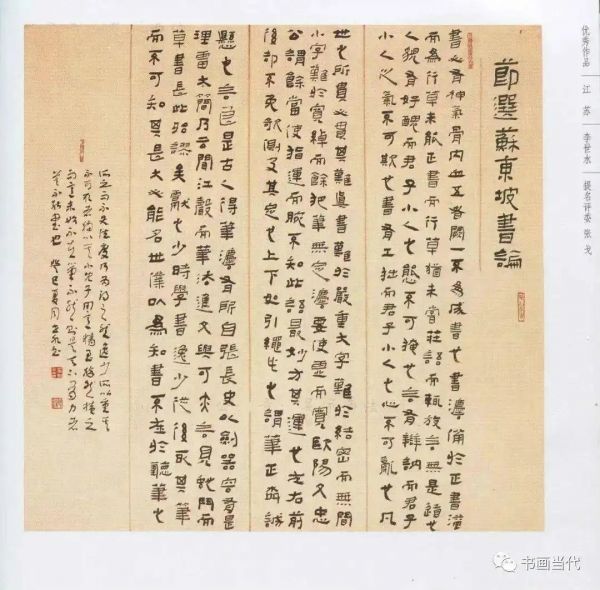 优秀作品 江苏 李世水 提名评委 张戈
節選蘇東坡書論
書必有神氣骨肉血五者闕一不為成書也書法備於正書溢
而為行草未能正書而行草猶未嘗莊語而輒放言無是道也
人貌有好醜而君子小人之態不可掩也言有辯訥而君子
小人之氣不可欺也書有工拙而君子小人之心不可亂也凡
世之所貴必貴其難真書難於嚴重大字難於結密而無間
小字難於寬綽而餘把筆無定法要使虛而寬歐陽文忠
公謂餘當使指運而腕不知此語最妙方其運也左右前
後却不免欹側及其定也上下如引繩此之謂筆正柳誠
懸之言良是古人得筆法有所自張長史以劍器容有是
理雷太簡乃云聞江聲而筆法進文與可亦言見蛇鬥而
草書長此殆謬矣獻之少時學書逸少從後取其筆
而不可知其長大必能名世僕以為知書不在於聽筆之
所之而不失法度乃為得之然逸少所以重其
不可取者獨以其小兒子用意精至猛然掩之
而意未始不在筆不然則是天下有力者
莫不能書也 癸巳夏月
书画当代